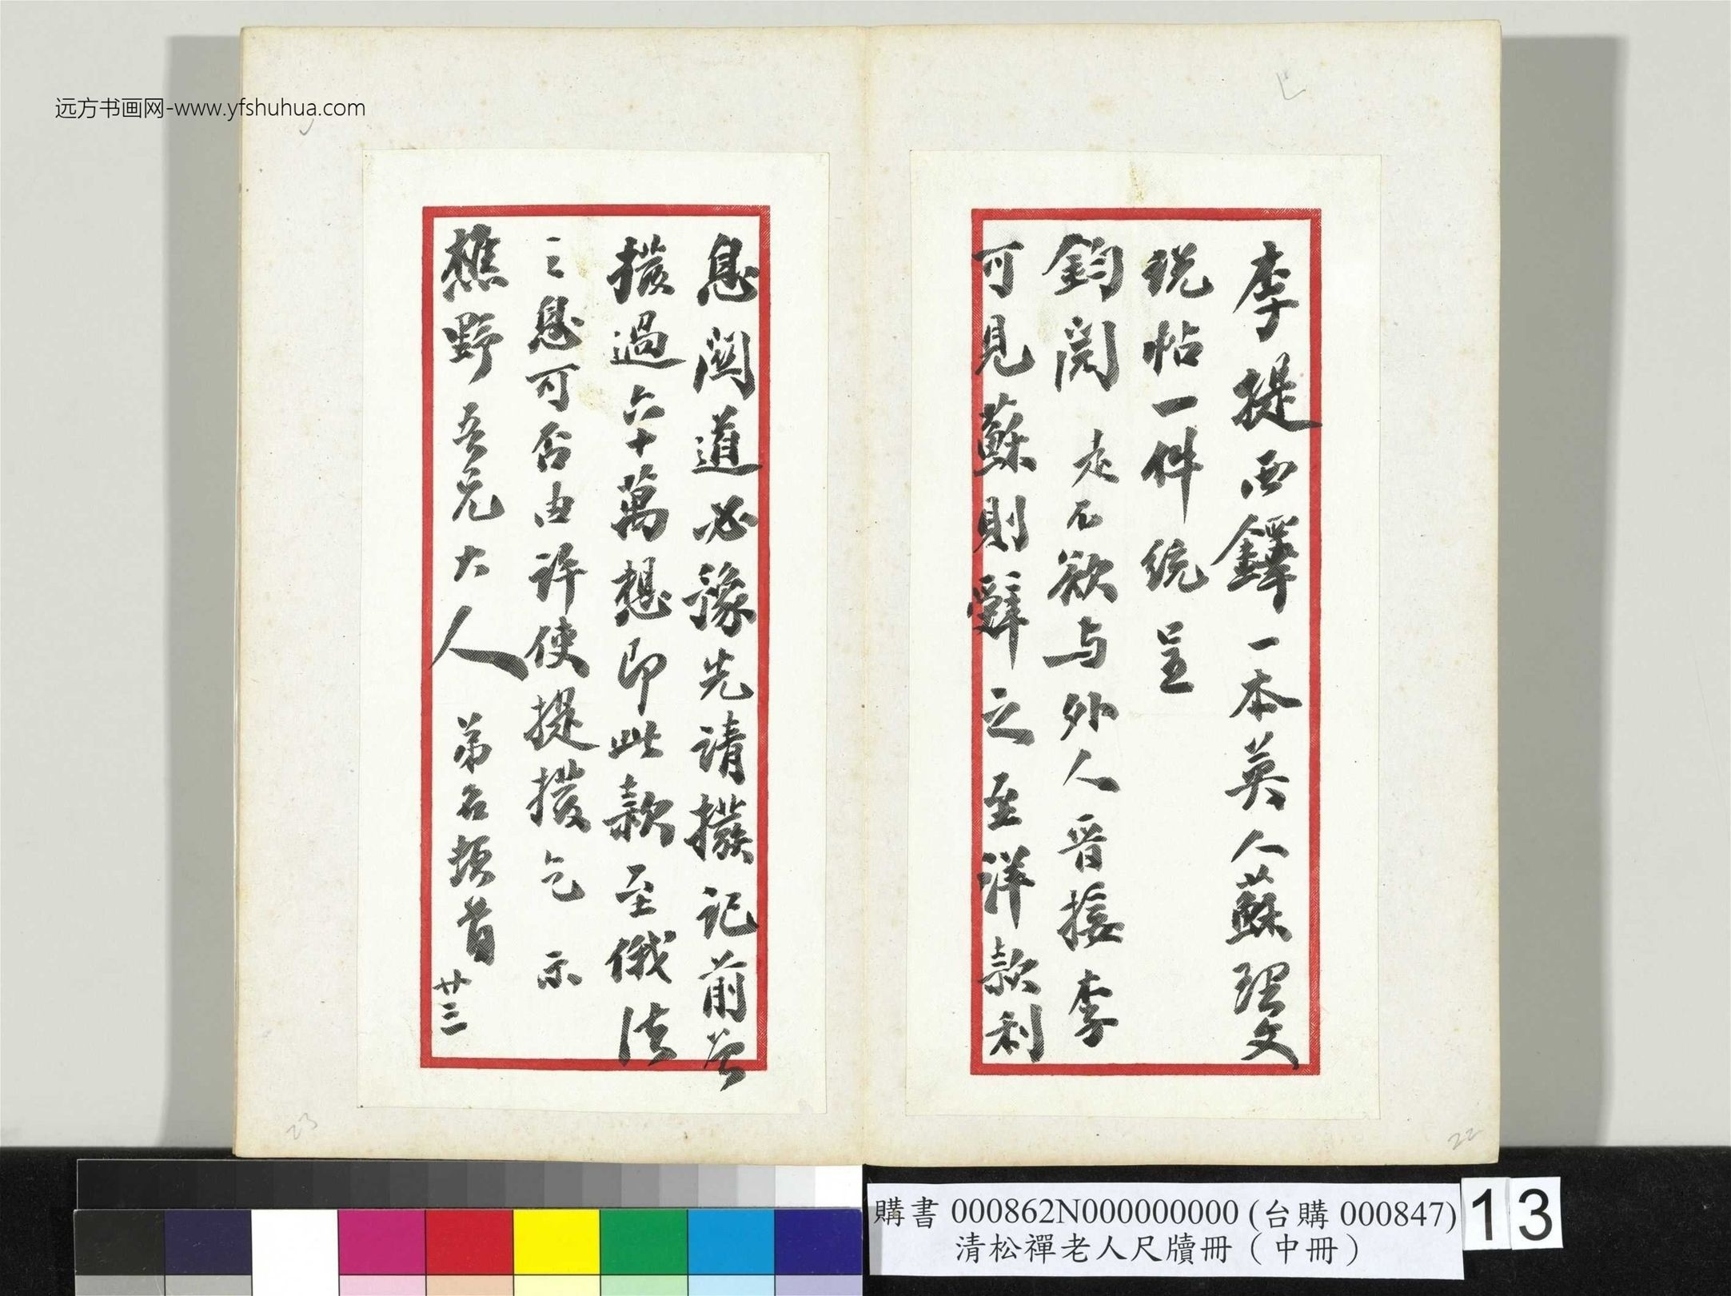 远方书画网-www.yfshuhua.com
李提西鐸一本英人蘇理文
説帖一件統呈
鈞閱 走不欲与外人晋接李
可見蘇則辭之至洋款利
息関道必豫先請撥記前屬
撥過六十萬想即此款至俄法
之息可否由許使提撥乞 示
樵野吾兄大人 弟名頓首 廿三
23
22
購書 000862N000000000 (台購 000847)
清松禪老人尺牘冊（中冊）
13